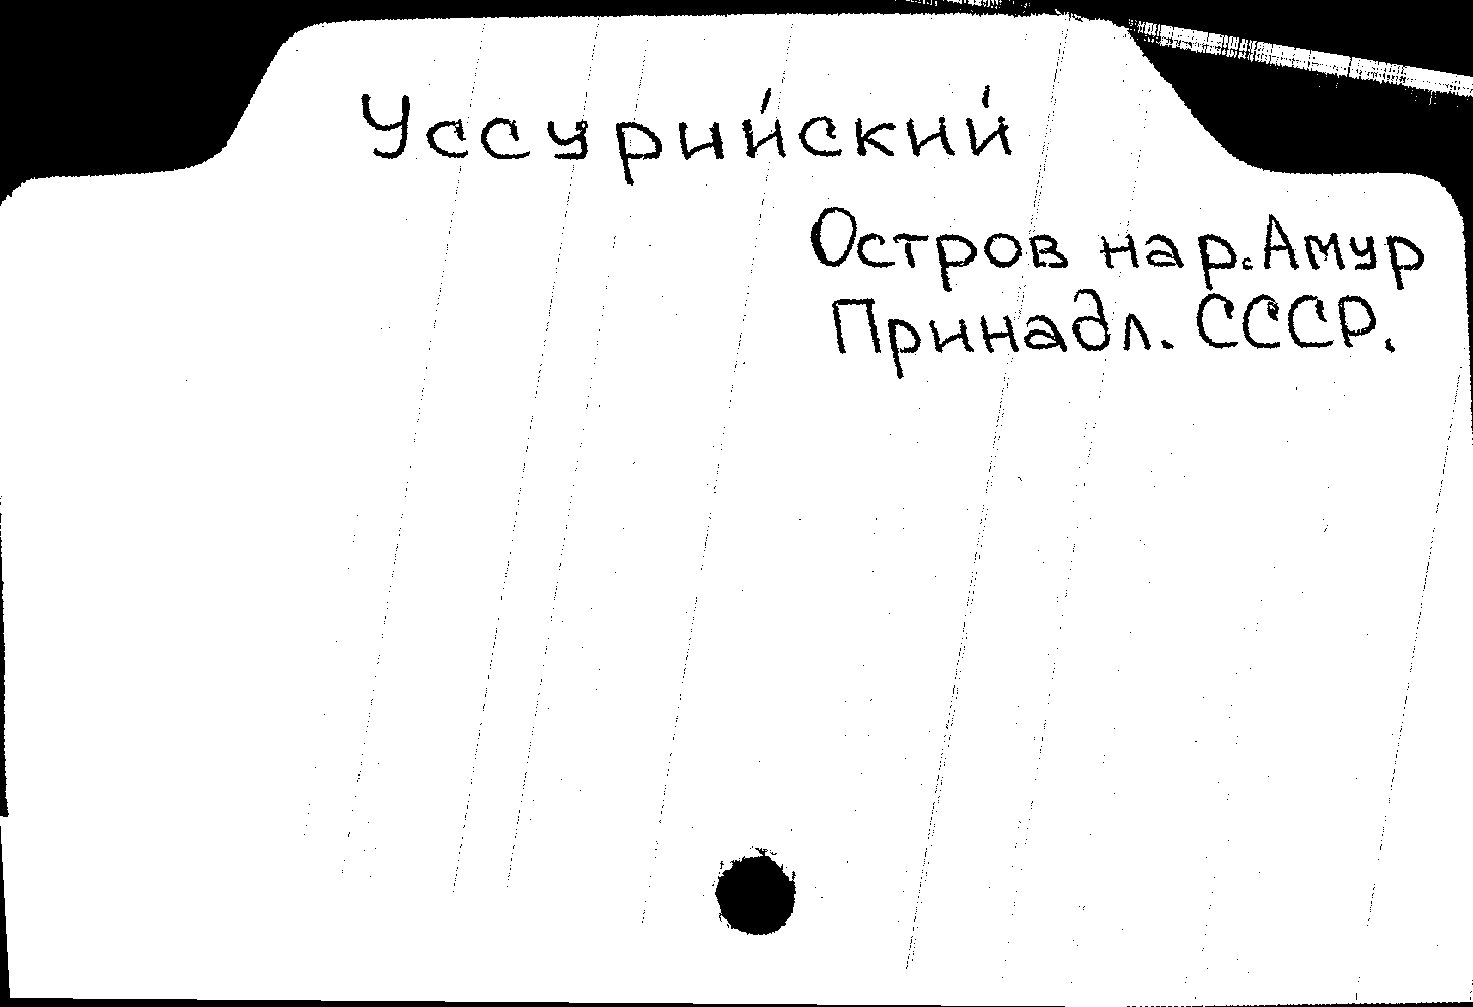 Уссурийский
Остров на р. Амур
Принадл. СССР.